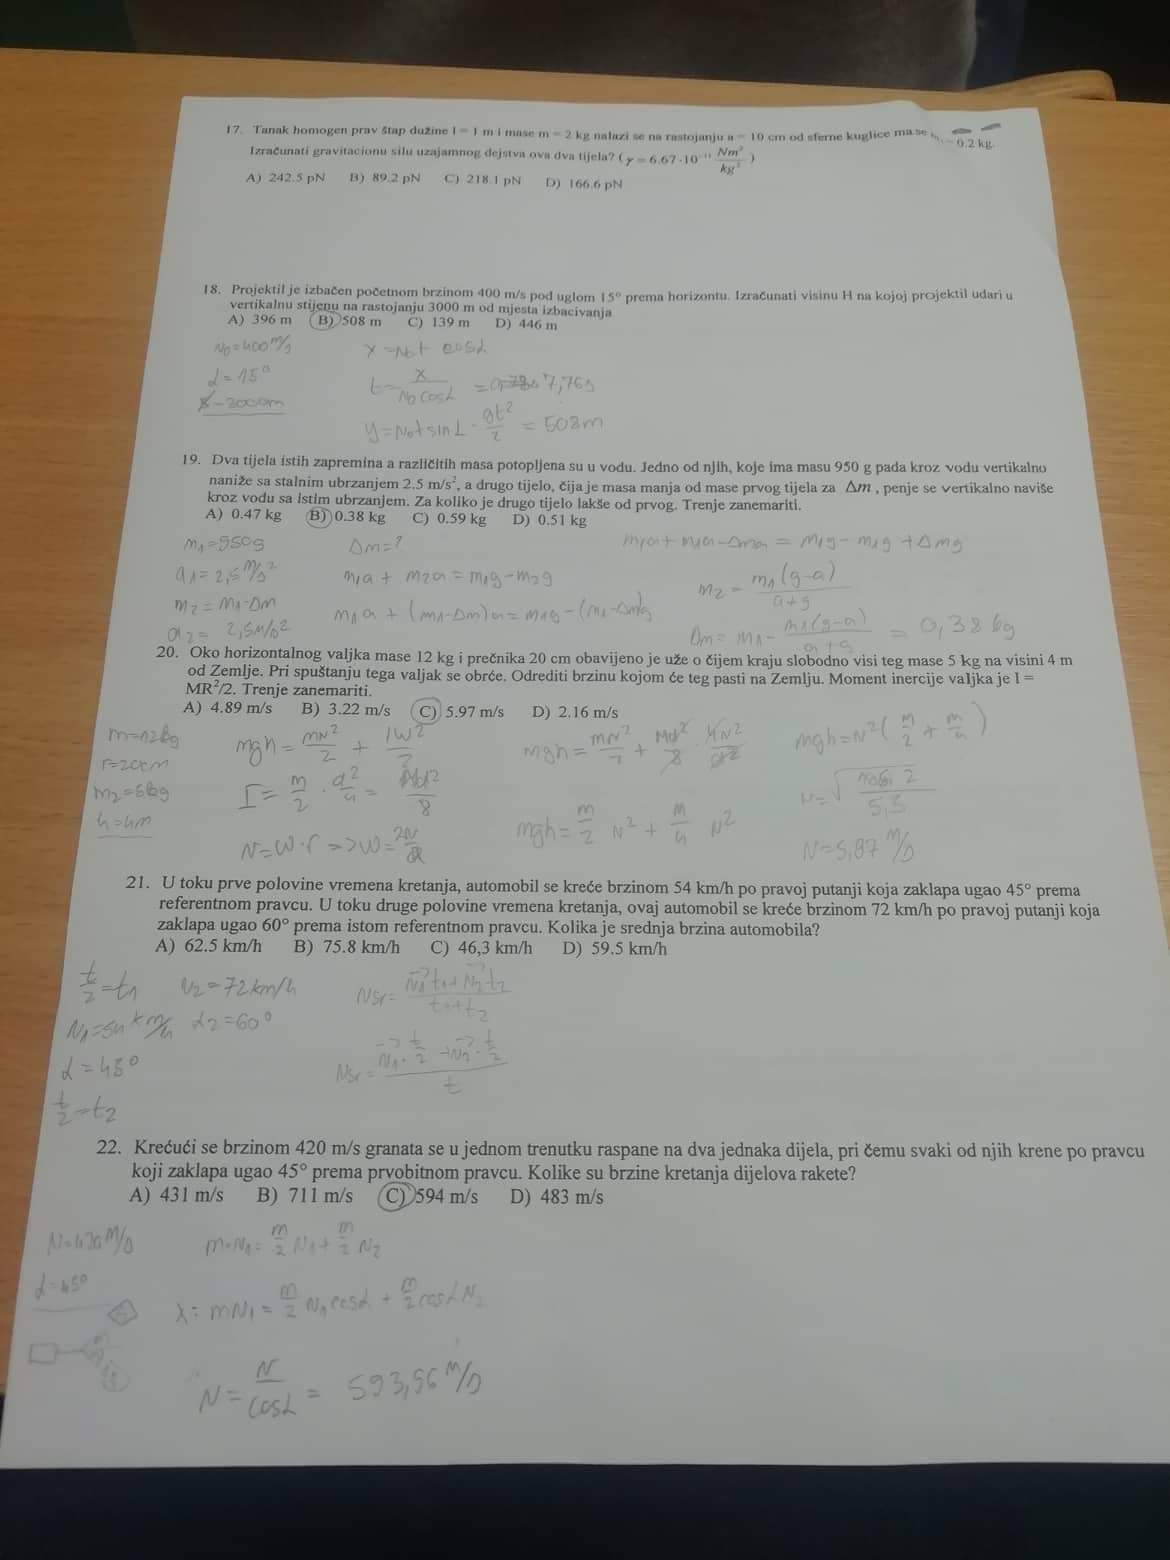 17. Tanak homogen prav štap dužine l = 1 m i mase m = 2 kg nalazi se na rastojanju a = 10 cm od sferne kuglice mase m₁ = 0.2 kg.
Izračunati gravitacionu silu uzajamnog dejstva ova dva tijela? (γ = 6.67·10⁻¹¹ Nm²/kg²)
A) 242.5 pN B) 89.2 pN C) 218.1 pN D) 166.6 pN
18. Projektil je izbačen početnom brzinom 400 m/s pod uglom 15° prema horizontu. Izračunati visinu H na kojoj projektil udari u
vertikalnu stijenu na rastojanju 3000 m od mjesta izbacivanja
A) 396 m B) 508 m C) 139 m D) 446 m
v₀=400 m/s
x = v₀t cosα
α = 15°
t = x/v₀cosα = 7,76s
y = v₀t sinα · gt²/2 = 508m
19. Dva tijela istih zapremina a različitih masa potopljena su u vodu. Jedno od njih, koje ima masu 950 g pada kroz vodu vertikalno
naniže sa stalnim ubrzanjem 2.5 m/s², a drugo tijelo, čija je masa manja od mase prvog tijela za Δm, penje se vertikalno naviše
kroz vodu sa istim ubrzanjem. Za koliko je drugo tijelo lakše od prvog. Trenje zanemariti.
A) 0.47 kg B) 0.38 kg C) 0.59 kg D) 0.51 kg
m₁=950g Δm=? m₁a + m₁a - Δma = m₁g - m₁g + Δmg
a₁= 2,5 m/s² m₁a + m₂a = m₁g - m₂g m₂ = m₁(g-a)/a+g
m₂ = m₁-Δm m₁a + (m₁-Δm)a = m₁g - (m₁-Δm)g
a₂= 2,5m/s² Δm = m₁ - m₁(g-a)/a+g = 0,38 kg
20. Oko horizontalnog valjka mase 12 kg i prečnika 20 cm obavijeno je uže o čijem kraju slobodno visi teg mase 5 kg na visini 4 m
od Zemlje. Pri spuštanju tega valjak se obrće. Odrediti brzinu kojom će teg pasti na Zemlju. Moment inercije valjka je I =
MR²/2. Trenje zanemariti.
A) 4.89 m/s B) 3.22 m/s C) 5.97 m/s D) 2.16 m/s
m=12kg mgh = mv²/2 + Iω²/2 mgh = v²(m/2 + m/4)
r=20cm
h=4m
I = m/2 · d²/4 = Md²/8
mgh = m/2 v² + m/4 v²
v=ω·r => ω= 2v/d
v=5,97 m/s
21. U toku prve polovine vremena kretanja, automobil se kreće brzinom 54 km/h po pravoj putanji koja zaklapa ugao 45° prema
referentnom pravcu. U toku druge polovine vremena kretanja, ovaj automobil se kreće brzinom 72 km/h po pravoj putanji koja
zaklapa ugao 60° prema istom referentnom pravcu. Kolika je srednja brzina automobila?
A) 62.5 km/h B) 75.8 km/h C) 46,3 km/h D) 59.5 km/h
t/2 = t₁ v₂=72km/h vsr= v₁t₁+v₂t₂/t₁+t₂
v₁=54 km/h α₂=60°
α = 45° vsr= v₁·t/2 + v₂·t/2 / t
t/2 = t₂
22. Krećući se brzinom 420 m/s granata se u jednom trenutku raspane na dva jednaka dijela, pri čemu svaki od njih krene po pravcu
koji zaklapa ugao 45° prema prvobitnom pravcu. Kolike su brzine kretanja dijelova rakete?
A) 431 m/s B) 711 m/s C) 594 m/s D) 483 m/s
v=420 m/s m·v₁= m/2 v₁ + m/2 v₂
α=45°
x: mv₁ = m/2 v₁cosα + m/2 cosα v₂
v = v/cosα = 593,96 m/s